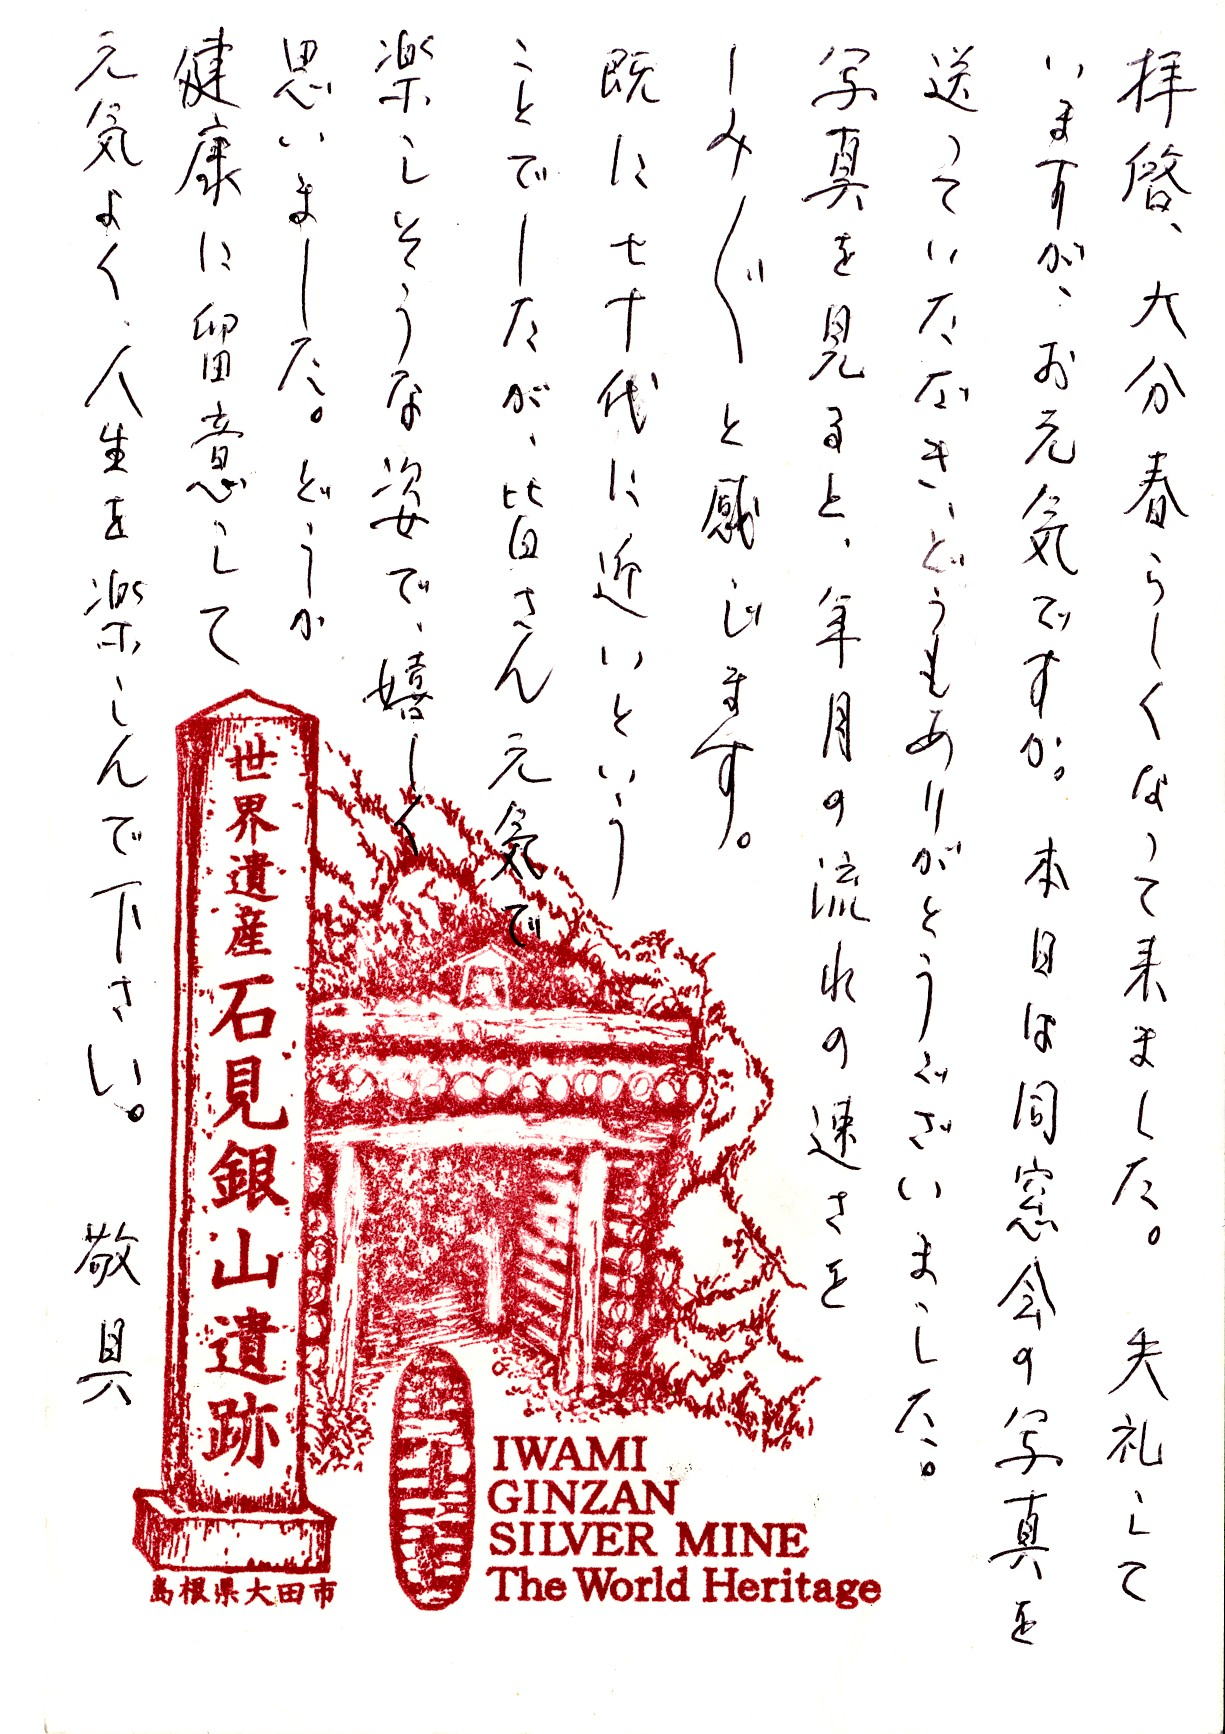 拝啓、大分春らしくなって来ました。 失礼して
いますが、お元気ですか。 本日は同窓会の写真を
送っていただき、どうもありがとうございました。
写真を見ると、年月の流れの速さを
しみ〲と感じます。
既に七十代に近いという
ことでしたが、皆さん元気で
楽しそうな姿で、嬉しく
思いました。どうか
健康に留意して
元気よく、人生を楽しんで下さい。 敬具
世界遺産石見銀山遺跡
島根県大田市
IWAMI
GINZAN
SILVER MINE
The World Heritage